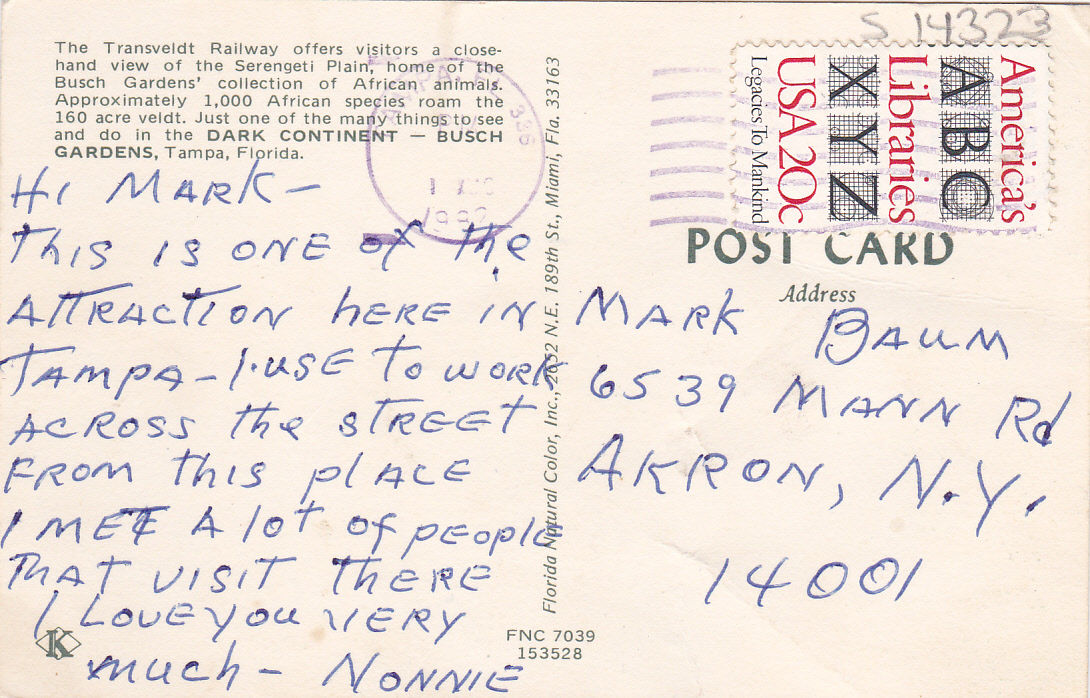 S 14323
The Transveldt Railway offers visitors a close-
hand view of the Serengeti Plain, home of the
Busch Gardens' collection of African animals.
Approximately 1,000 African species roam the
160 acre veldt. Just one of the many things to see
and do in the DARK CONTINENT — BUSCH
GARDENS, Tampa, Florida.
HI MARK —
THIS IS ONE OF THE
ATTRACTION HERE IN
TAMPA — I USE TO WORK
ACROSS the STREET
FROM THIS PLACE
I MET A lot of PEOPLE
THAT VISIT THERE
I LOVE YOU VERY
much — NONNIE
K
FNC 7039
153528
Florida Natural Color, Inc., 2052 N.E. 189th St., Miami, Fla. 33163
336
1982
America's
ABC
Libraries
XYZ
USA 20c
Legacies To Mankind
POST CARD
Address
MARK BAUM
6539 MANN Rd
AKRON, N.Y.
14001